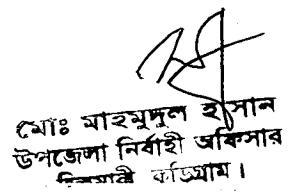 মোঃ মাহমুদুল হাসান
উপজেলা নির্বাহী অফিসার
চিলমারী, কুড়িগ্রাম।